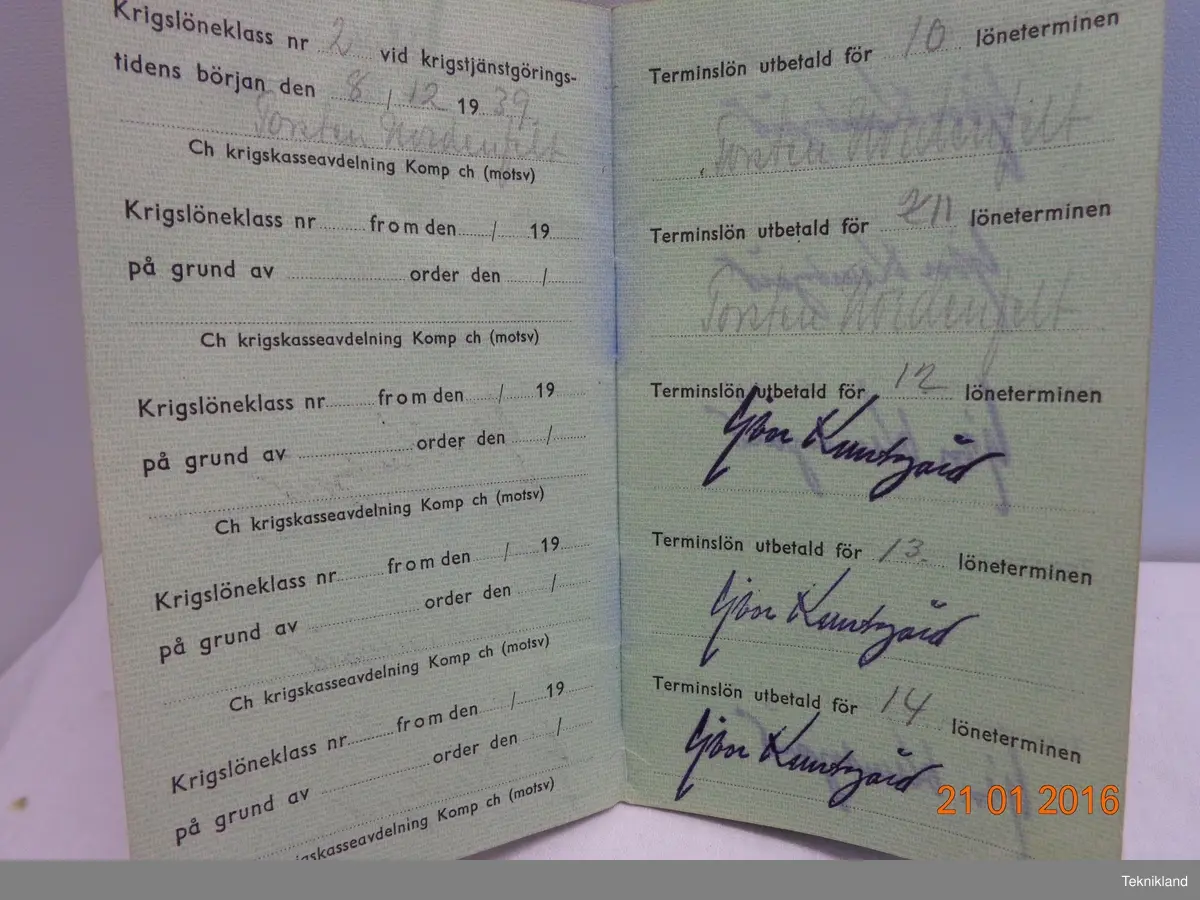 Krigslöneklass nr 2 vid krigstjänstgörings-
tidens början den 8 / 12 19 39.
Torsten Nordenfelt
Ch krigskasseavdelning Komp ch (motsv)
Krigslöneklass nr from den / 19
på grund av order den /
Ch krigskasseavdelning Komp ch (motsv)
Krigslöneklass nr from den / 19
på grund av order den /
Ch krigskasseavdelning Komp ch (motsv)
Krigslöneklass nr from den / 19
på grund av order den /
Ch krigskasseavdelning Komp ch (motsv)
Krigslöneklass nr from den / 19
på grund av order den /
skasseavdelning Komp ch (motsv)
Terminslön utbetald för 10 löneterminen
Torsten Nordenfelt
Terminslön utbetald för 11 löneterminen
Torsten Nordenfelt
Terminslön utbetald för 12 löneterminen
Terminslön utbetald för 13. löneterminen
Terminslön utbetald för 14 löneterminen
21 01 2016
Teknikland